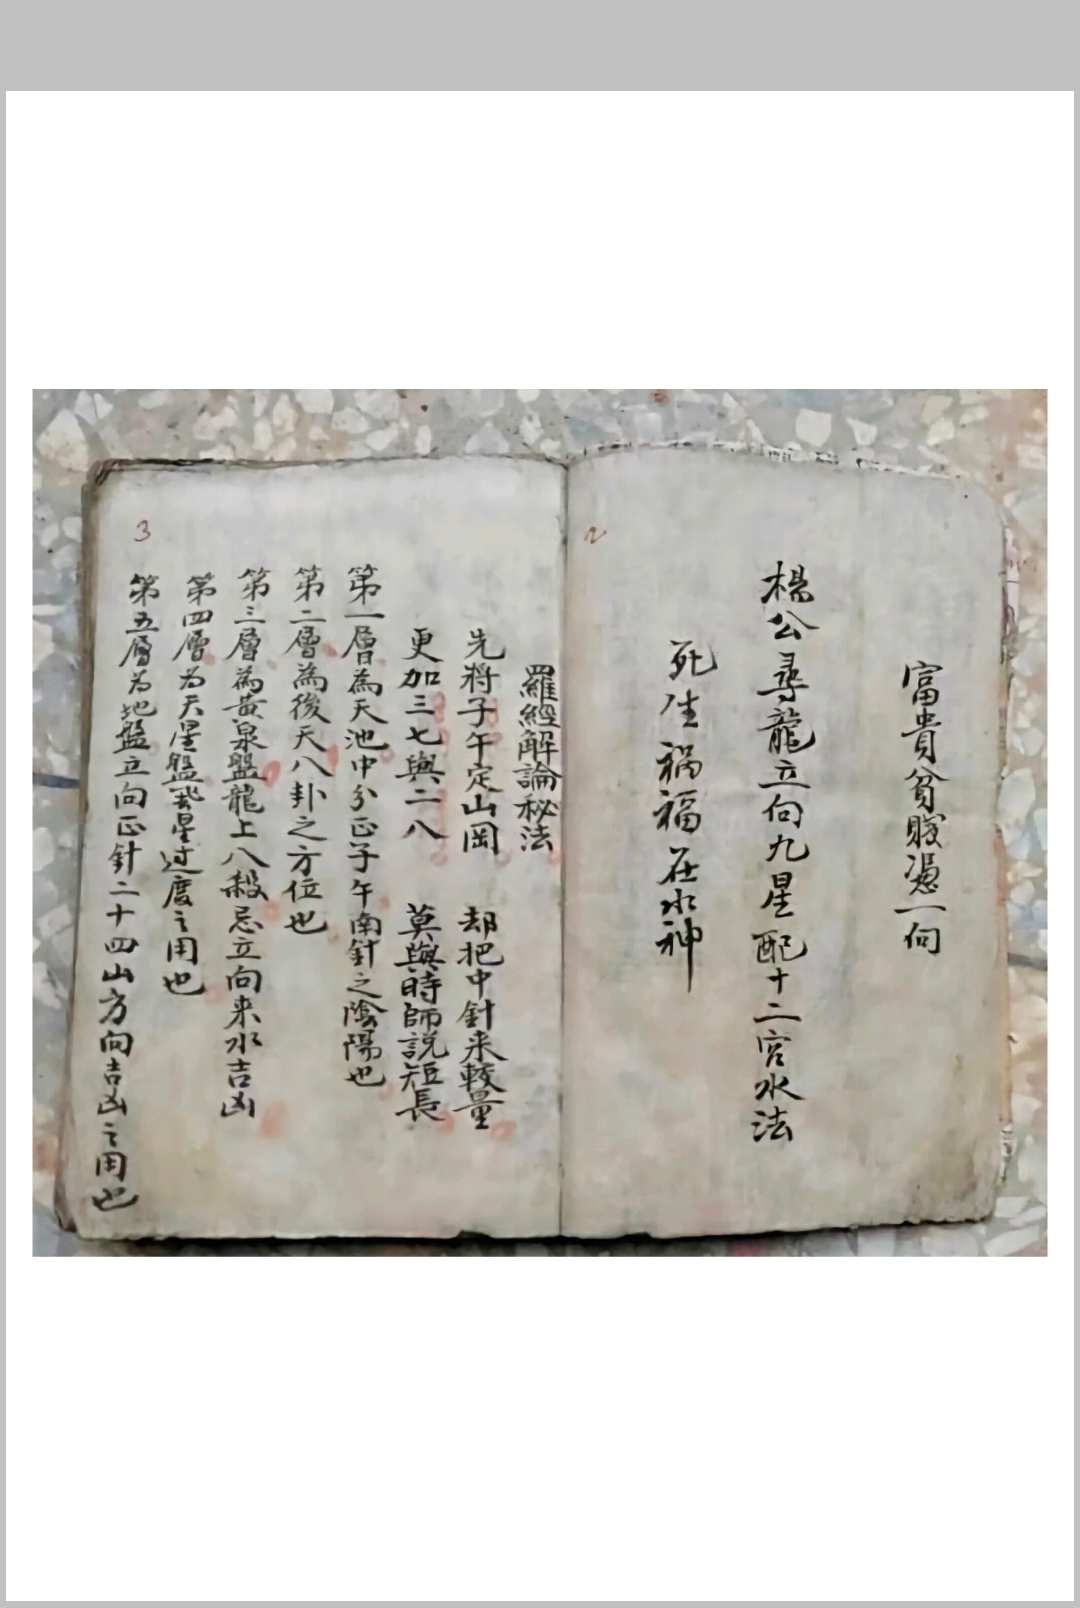 富貴貧賤憑一向
楊公尋龍立向九星配十二宮水法
死生禍福在水神
2
羅經解論秘法
先將子午定山岡 却把中針来較量
更加三七與二八 莫與時師説短長
第一層為天池中分正子午南針之陰陽也
第二層為後天八卦之方位也
第三層為黃泉盤龍上八殺忌立向来水吉凶
第四層为天星盤 星过度之用也
第五層为地盤立向正針二十四山方向吉凶之用也
3